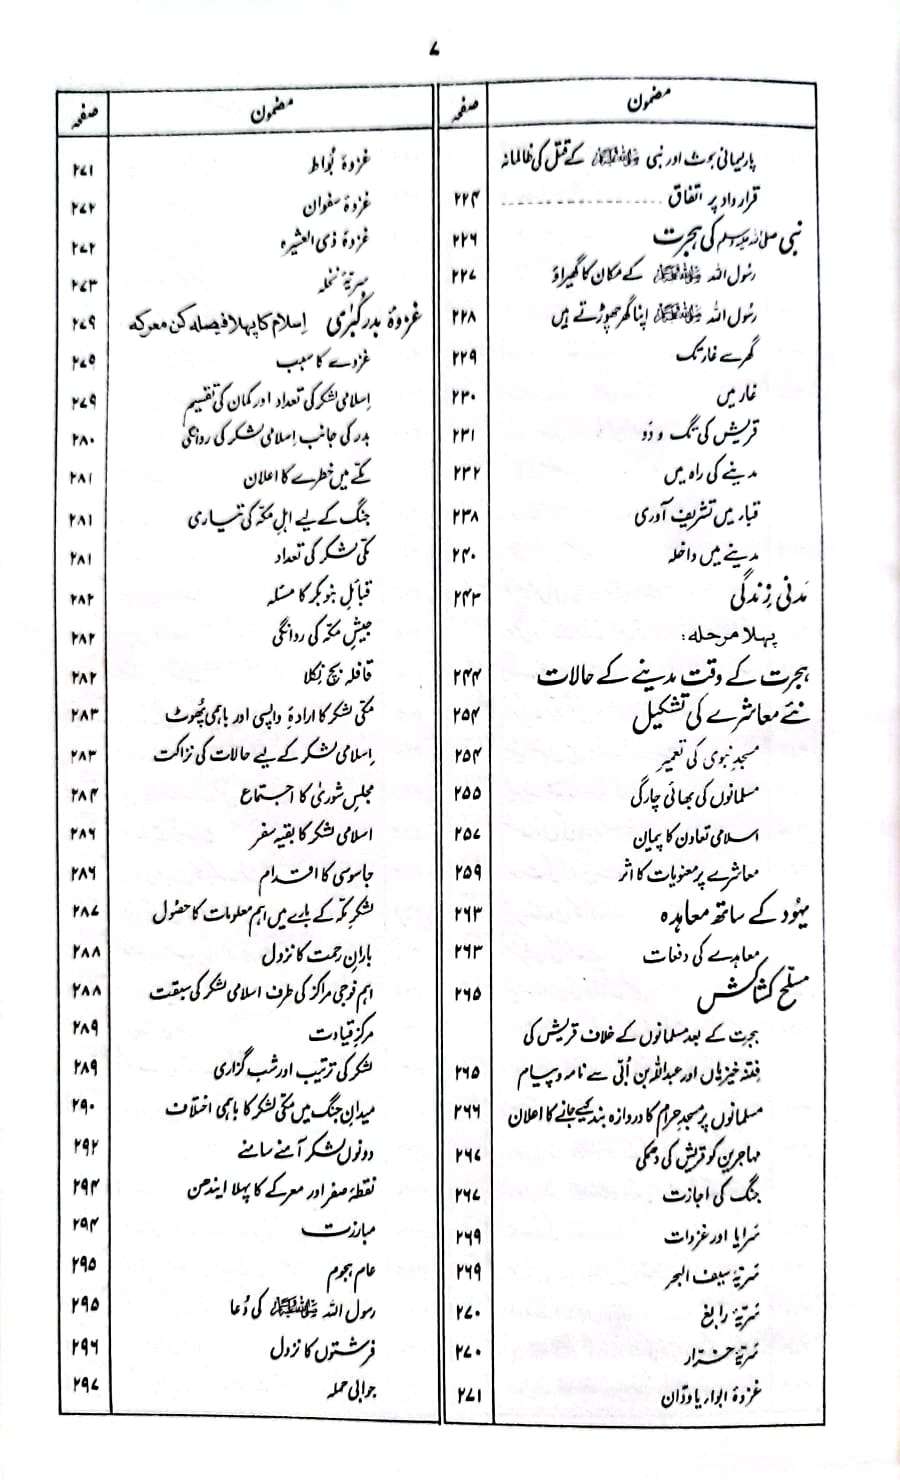 ۷
مضمون صفحہ
پارلیمانی بحث اور نبی ﷺ کے قتل کی ظالمانہ
قرارداد پر اتفاق ۲۲۴
نبی صلی اللہ علیہ وسلم کی ہجرت ۲۲۶
رسُول اللہ ﷺ کے مکان کا گھیراؤ ۲۲۷
رسُول اللہ ﷺ اپنا گھر چھوڑتے ہیں ۲۲۸
گھر سے غار تک ۲۲۹
غار میں ۲۳۰
قریش کی تگ و دَو ۲۳۱
مدینے کی راہ میں ۲۳۲
قباء میں تشریف آوری ۲۳۸
مدینے میں داخلہ ۲۴۰
مَدنی زِندگی ۲۴۳
پہلا مرحلہ:
ہجرت کے وقت مدینے کے حالات ۲۴۴
نئے معاشرے کی تشکیل ۲۵۴
مسجدِ نبوی کی تعمیر ۲۵۴
مسلمانوں کی بھائی چارگی ۲۵۵
اسلامی تعاون کا پیمان ۲۵۷
معاشرے پر معنویات کا اثر ۲۵۹
یہُود کے ساتھ معاہدہ ۲۶۳
معاہدے کی دفعات ۲۶۳
مسلّح کشاکش ۲۶۵
ہجرت کے بعد مسلمانوں کے خلاف قریش کی
فتنہ خیزیاں اور عبداللہ بن اُبَی سے نامہ و پیام ۲۶۵
مسلمانوں پر مسجدِ حرام کا دروازہ بند کیے جانے کا اعلان ۲۶۶
مہاجرین کو قریش کی دھمکی ۲۶۷
جنگ کی اجازت ۲۶۷
سَرایا اور غزوات ۲۶۹
سَریّۂ سیف البحر ۲۶۹
سَریّۂ رابغ ۲۷۰
سَریّۂ خرّار ۲۷۰
غزوۂ ابواء یا ودّان ۲۷۱
مضمون صفحہ
غزوۂ بُواط ۲۷۱
غزوۂ سفوان ۲۷۲
غزوۂ ذی العشیرہ ۲۷۲
سریّۂ نخلہ ۲۷۳
غزوۂ بدر کُبرٰی اِسلام کا پہلا فیصلہ کن معرکہ ۲۷۹
غزوے کا سبب ۲۷۹
اِسلامی لشکر کی تعداد اور کمان کی تقسیم ۲۷۹
بدر کی جانب اِسلامی لشکر کی روانگی ۲۸۰
مکّے میں خطرے کا اعلان ۲۸۱
جنگ کے لیے اہلِ مکّہ کی تیاری ۲۸۱
مکّی لشکر کی تعداد ۲۸۱
قبائل بنو بکر کا مسئلہ ۲۸۲
جیشِ مکّہ کی روانگی ۲۸۲
قافلہ بچ نِکلا ۲۸۲
مکّی لشکر کا ارادۂ واپسی اور باہمی پُھوٹ ۲۸۳
اِسلامی لشکر کے لیے حالات کی نزاکت ۲۸۳
مجلسِ شورٰی کا اجتماع ۲۸۴
اسلامی لشکر کا بقیہ سفر ۲۸۶
جاسوسی کا اقدام ۲۸۶
لشکرِ مکّہ کے بارے میں اہم معلومات کا حصُول ۲۸۷
بارانِ رحمت کا نزول ۲۸۸
اہم فوجی مراکز کی طرف اسلامی لشکر کی سبقت ۲۸۸
مرکزِ قیادت ۲۸۹
لشکر کی ترتیب اور شب گزاری ۲۸۹
میدانِ جنگ میں مکّی لشکر کا باہمی اختلاف ۲۹۰
دونوں لشکر آمنے سامنے ۲۹۲
نقطۂ صفر اور معرکے کا پہلا ایندھن ۲۹۴
مبارزت ۲۹۴
عام ہجوم ۲۹۵
رسول اللہ ﷺ کی دُعا ۲۹۵
فرشتوں کا نزول ۲۹۶
جوابی حملہ ۲۹۷